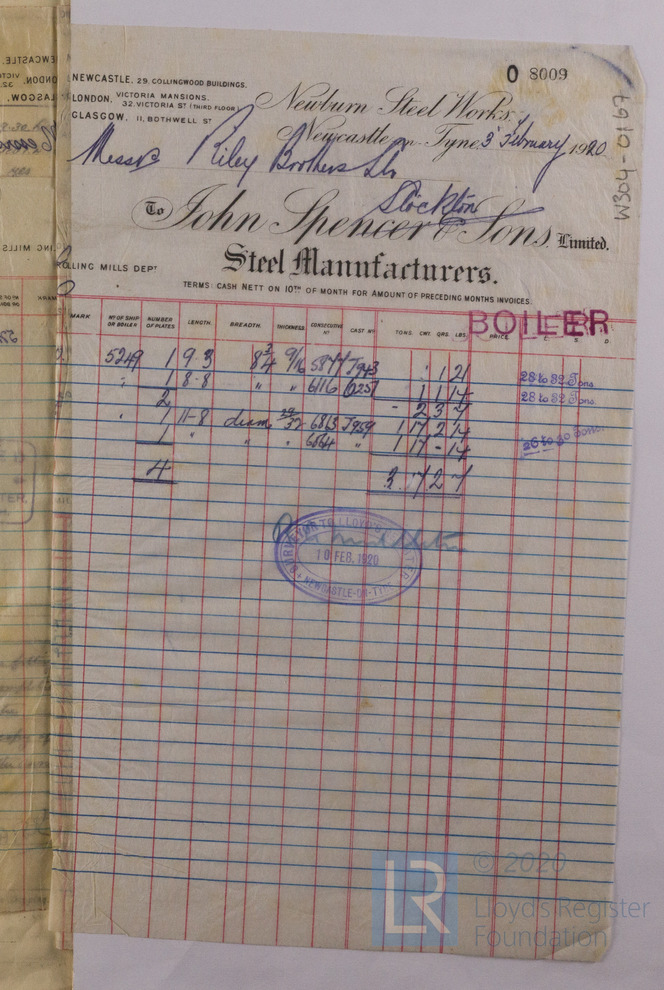 O 8009
W309-0197
NEWCASTLE, 29, COLLINGWOOD BUILDINGS.
LONDON, VICTORIA MANSIONS, 32, VICTORIA ST (THIRD FLOOR)
GLASGOW, 11, BOTHWELL ST
Newburn Steel Works,
Newcastle on Tyne, 3 February 1920
Messrs Riley Brothers Ld
Stockton
To John Spencer & Sons, Limited.
Steel Manufacturers.
LLING MILLS DEPT
TERMS: CASH NETT ON 10TH OF MONTH FOR AMOUNT OF PRECEDING MONTHS INVOICES
BOILER
MARK Nº OF SHIP OR BOILER NUMBER OF PLATES LENGTH. BREADTH. THICKNESS CONSECUTIVE Nº CAST Nº TONS. CWT. QRS. LBS. PRICE S D
5249 1 9.3 8¾ 9/16 5877 J943 1 21 28 to 32 Tons
" 1 8-8 " " 6116 1 1 14 28 to 32 Tons
2 - 2 3 7
" 1 11-8 diam 29/32 6863 J959 1 17 2 14 26 to 30 Tons
1 " " " 6864 " 1 17 - 14
4 3 17 2 7
SURVEYOR TO LLOYD'S REGISTER
10 FEB. 1920
NEWCASTLE-ON-TYNE
LR
© 2020
Lloyd's Register
Foundation